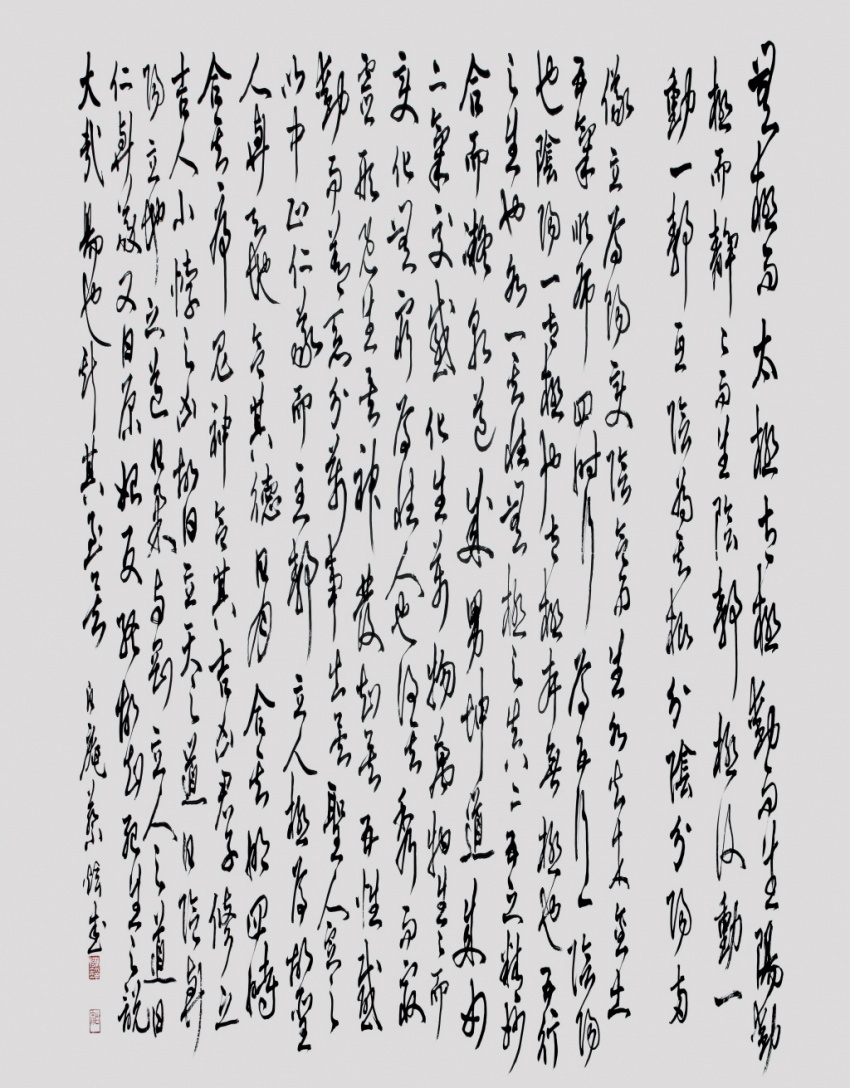 無極而太極太極動而生陽動
極而靜々而生陰靜極復動一
動一靜互陰為其根分陰分陽兩
儀立焉陽變陰合而生水火木金土
五氣順布四時行焉五行一陰陽
也陰陽一太極也太極本無極也五行
之生也各一其性無極之真二五之精妙
合而凝乾道成男坤道成女
二氣交感化生萬物萬物生々而
變化無窮焉惟人也得其秀而最
靈形既生矣神發知矣五性感
動而善惡分萬事出矣聖人定之
以中正仁義而主靜立人極焉故聖
人與天地合其德日月合其明四時
合其序鬼神合其吉凶君子修之
吉人小悖之凶故曰立天之道曰陰與
陽立地之道曰柔與剛立人之道曰
仁與義又曰原始反終故知死生之說
大哉易也斯其至矣